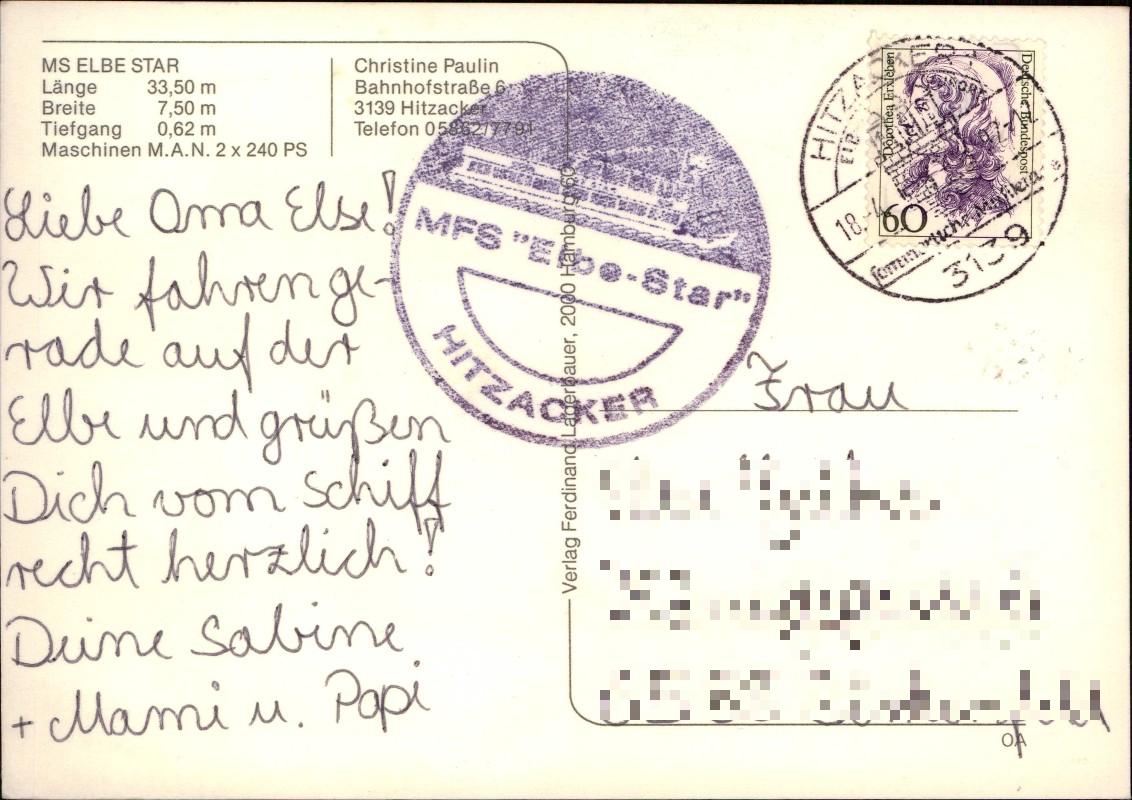 MS ELBE STAR
Länge 33,50 m
Breite 7,50 m
Tiefgang 0,62 m
Maschinen M.A.N. 2 x 240 PS
Christine Paulin
Bahnhofstraße 6
3139 Hitzacker
Telefon 05862/7791
MFS "Elbe-Star"
HITZACKER
HITZACKER 1
18.
3139
Dorothea Erxleben
Deutsche Bundespost
60
Liebe Oma Else!
Wir fahren ge-
rade auf der
Elbe und grüßen
Dich vom Schiff
recht herzlich!
Deine Sabine
+ Mami u. Papi
Verlag Ferdinand Lagerbauer, 2000 Hamburg 60
Frau
OA